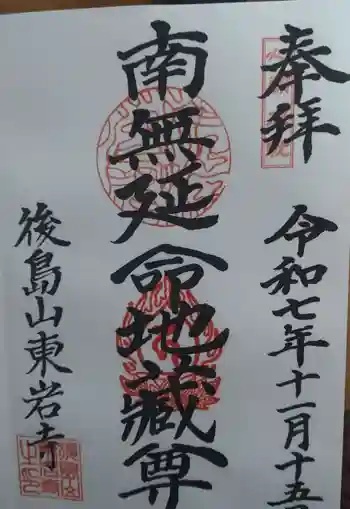 奉拝
令和七年十一月十五日
南無延命地蔵尊
後島山東岩寺